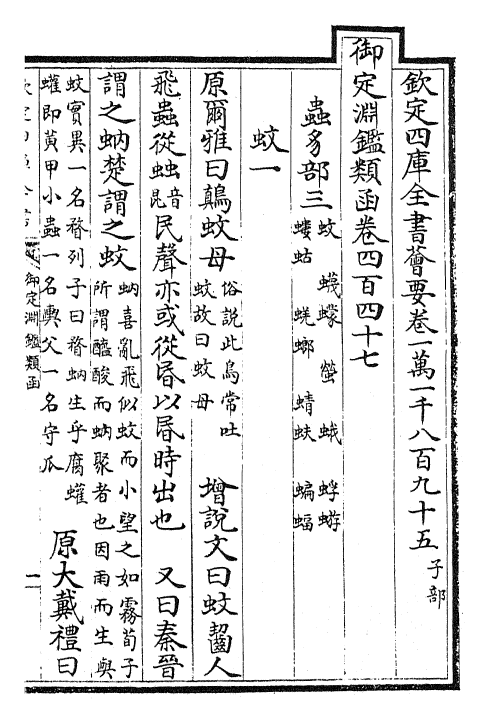 欽定四庫全書薈要卷一萬一千八百九十五 子部
御定淵鑑類函卷四百四十七
蟲豸部三 蚊 蠛蠓 螢 蛾 蜉蝣
螻蛄 蜣螂 蜻蛈 蝙蝠
蚊一
原爾雅曰鷏蚊母 俗說此鳥常吐
蚊故曰蚊母 增說文曰蚊齧人
飛蟲從䖵 音
昆 民聲亦或從昬以昬時出也 又曰秦晉
謂之蜹楚謂之蚊 蜹喜亂飛似蚊而小望之如霧荀子
所謂醯酸而蜹聚者也因雨而生與
蚊實異一名瞀列子曰瞀蜹生乎腐蠸
蠸即黃甲小蟲一名輿父一名守瓜 原大戴禮曰
御定淵鑑類函
一